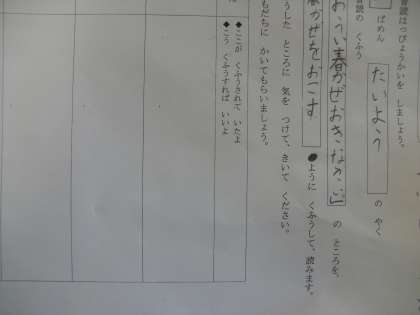 音読はっぴょうかいを しましょう。
ばめん たいよう の やく
音読の くふう
おうい春かぜおきなさい。」 の ところを、
春かぜをおこす ように くふうして、読みます。
うした ところに 気を つけて、きいて ください。
もだちに かいてもらいましょう。
◆ここが くふうされて いたよ
◆こう くふうすれば いいよ